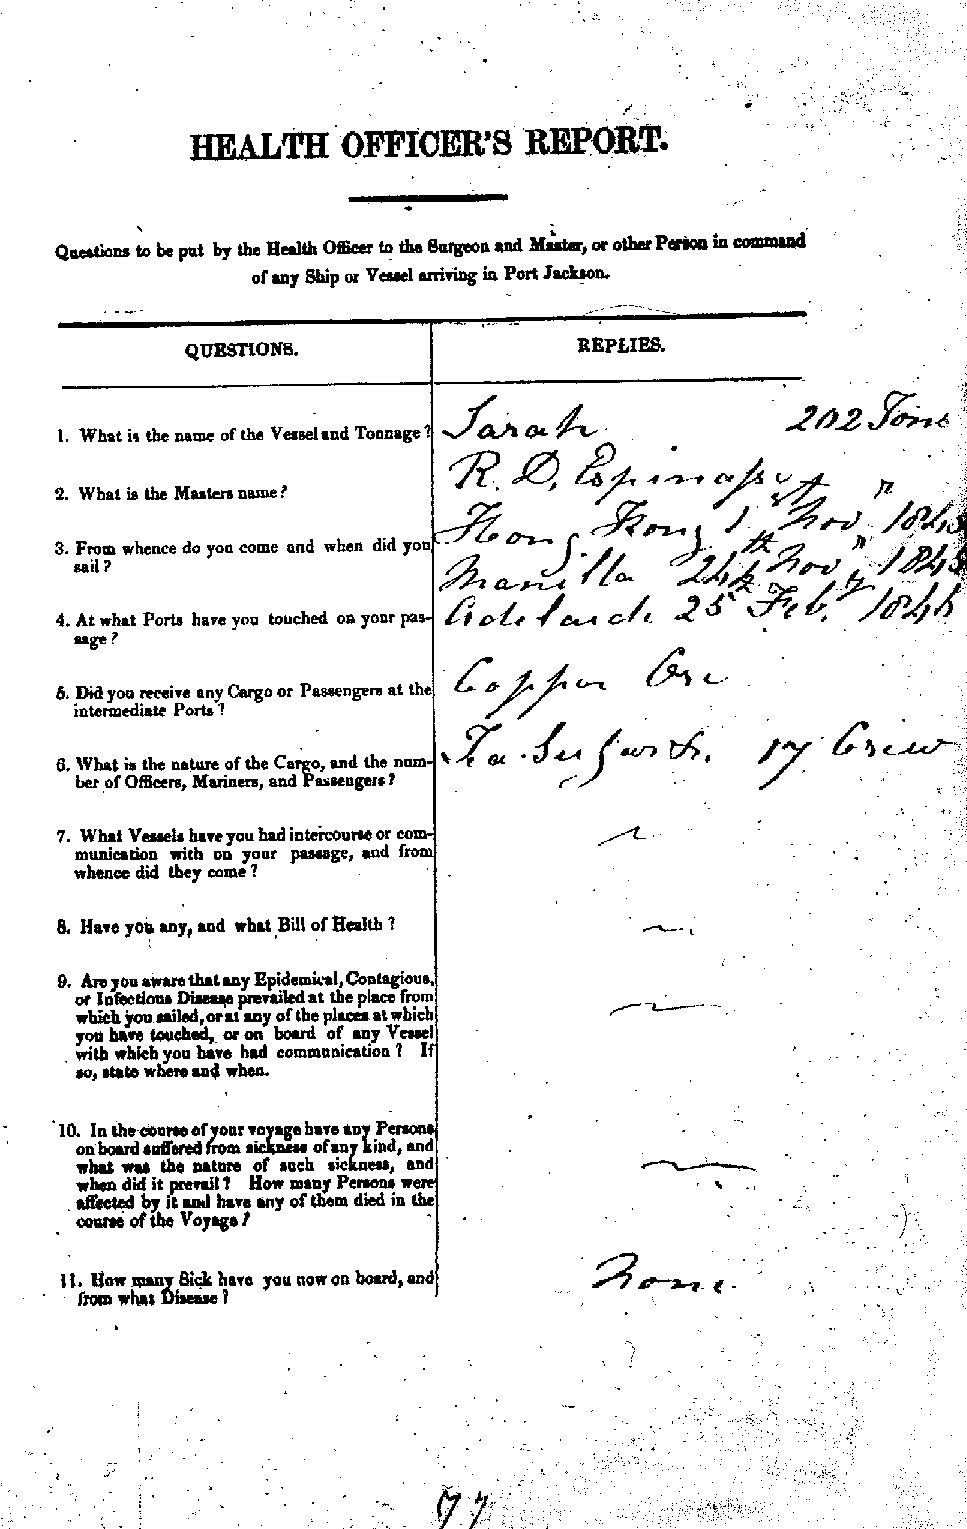 HEALTH OFFICER'S REPORT.
Questions to be put by the Health Officer to the Surgeon and Master, or other Person in command
of any Ship or Vessel arriving in Port Jackson.
QUESTIONS.
REPLIES.
1. What is the name of the Vessel and Tonnage?
Sarah 202 Tons
2. What is the Masters name?
R. D. Espinasse
3. From whence do you come and when did you
sail?
Hong Kong 1st Novr 1845
Manilla 24th Novr 1845
4. At what Ports have you touched on your pas-
sage?
Adelaide 25 Feby 1846
5. Did you receive any Cargo or Passengers at the
intermediate Ports?
Copper Ore
6. What is the nature of the Cargo, and the num-
ber of Officers, Mariners, and Passengers?
Tea Sugar &c. 17 Crew
7. What Vessels have you had intercourse or com-
munication with on your passage, and from
whence did they come?
8. Have you any, and what Bill of Health?
9. Are you aware that any Epidemical, Contagious,
or Infectious Disease prevailed at the place from
which you sailed, or at any of the places at which
you have touched, or on board of any Vessel
with which you have had communication? If
so, state where and when.
10. In the course of your voyage have any Persons
on board suffered from sickness of any kind, and
what was the nature of such sickness, and
when did it prevail? How many Persons were
affected by it and have any of them died in the
course of the Voyage?
11. How many Sick have you now on board, and
from what Disease?
None.
77